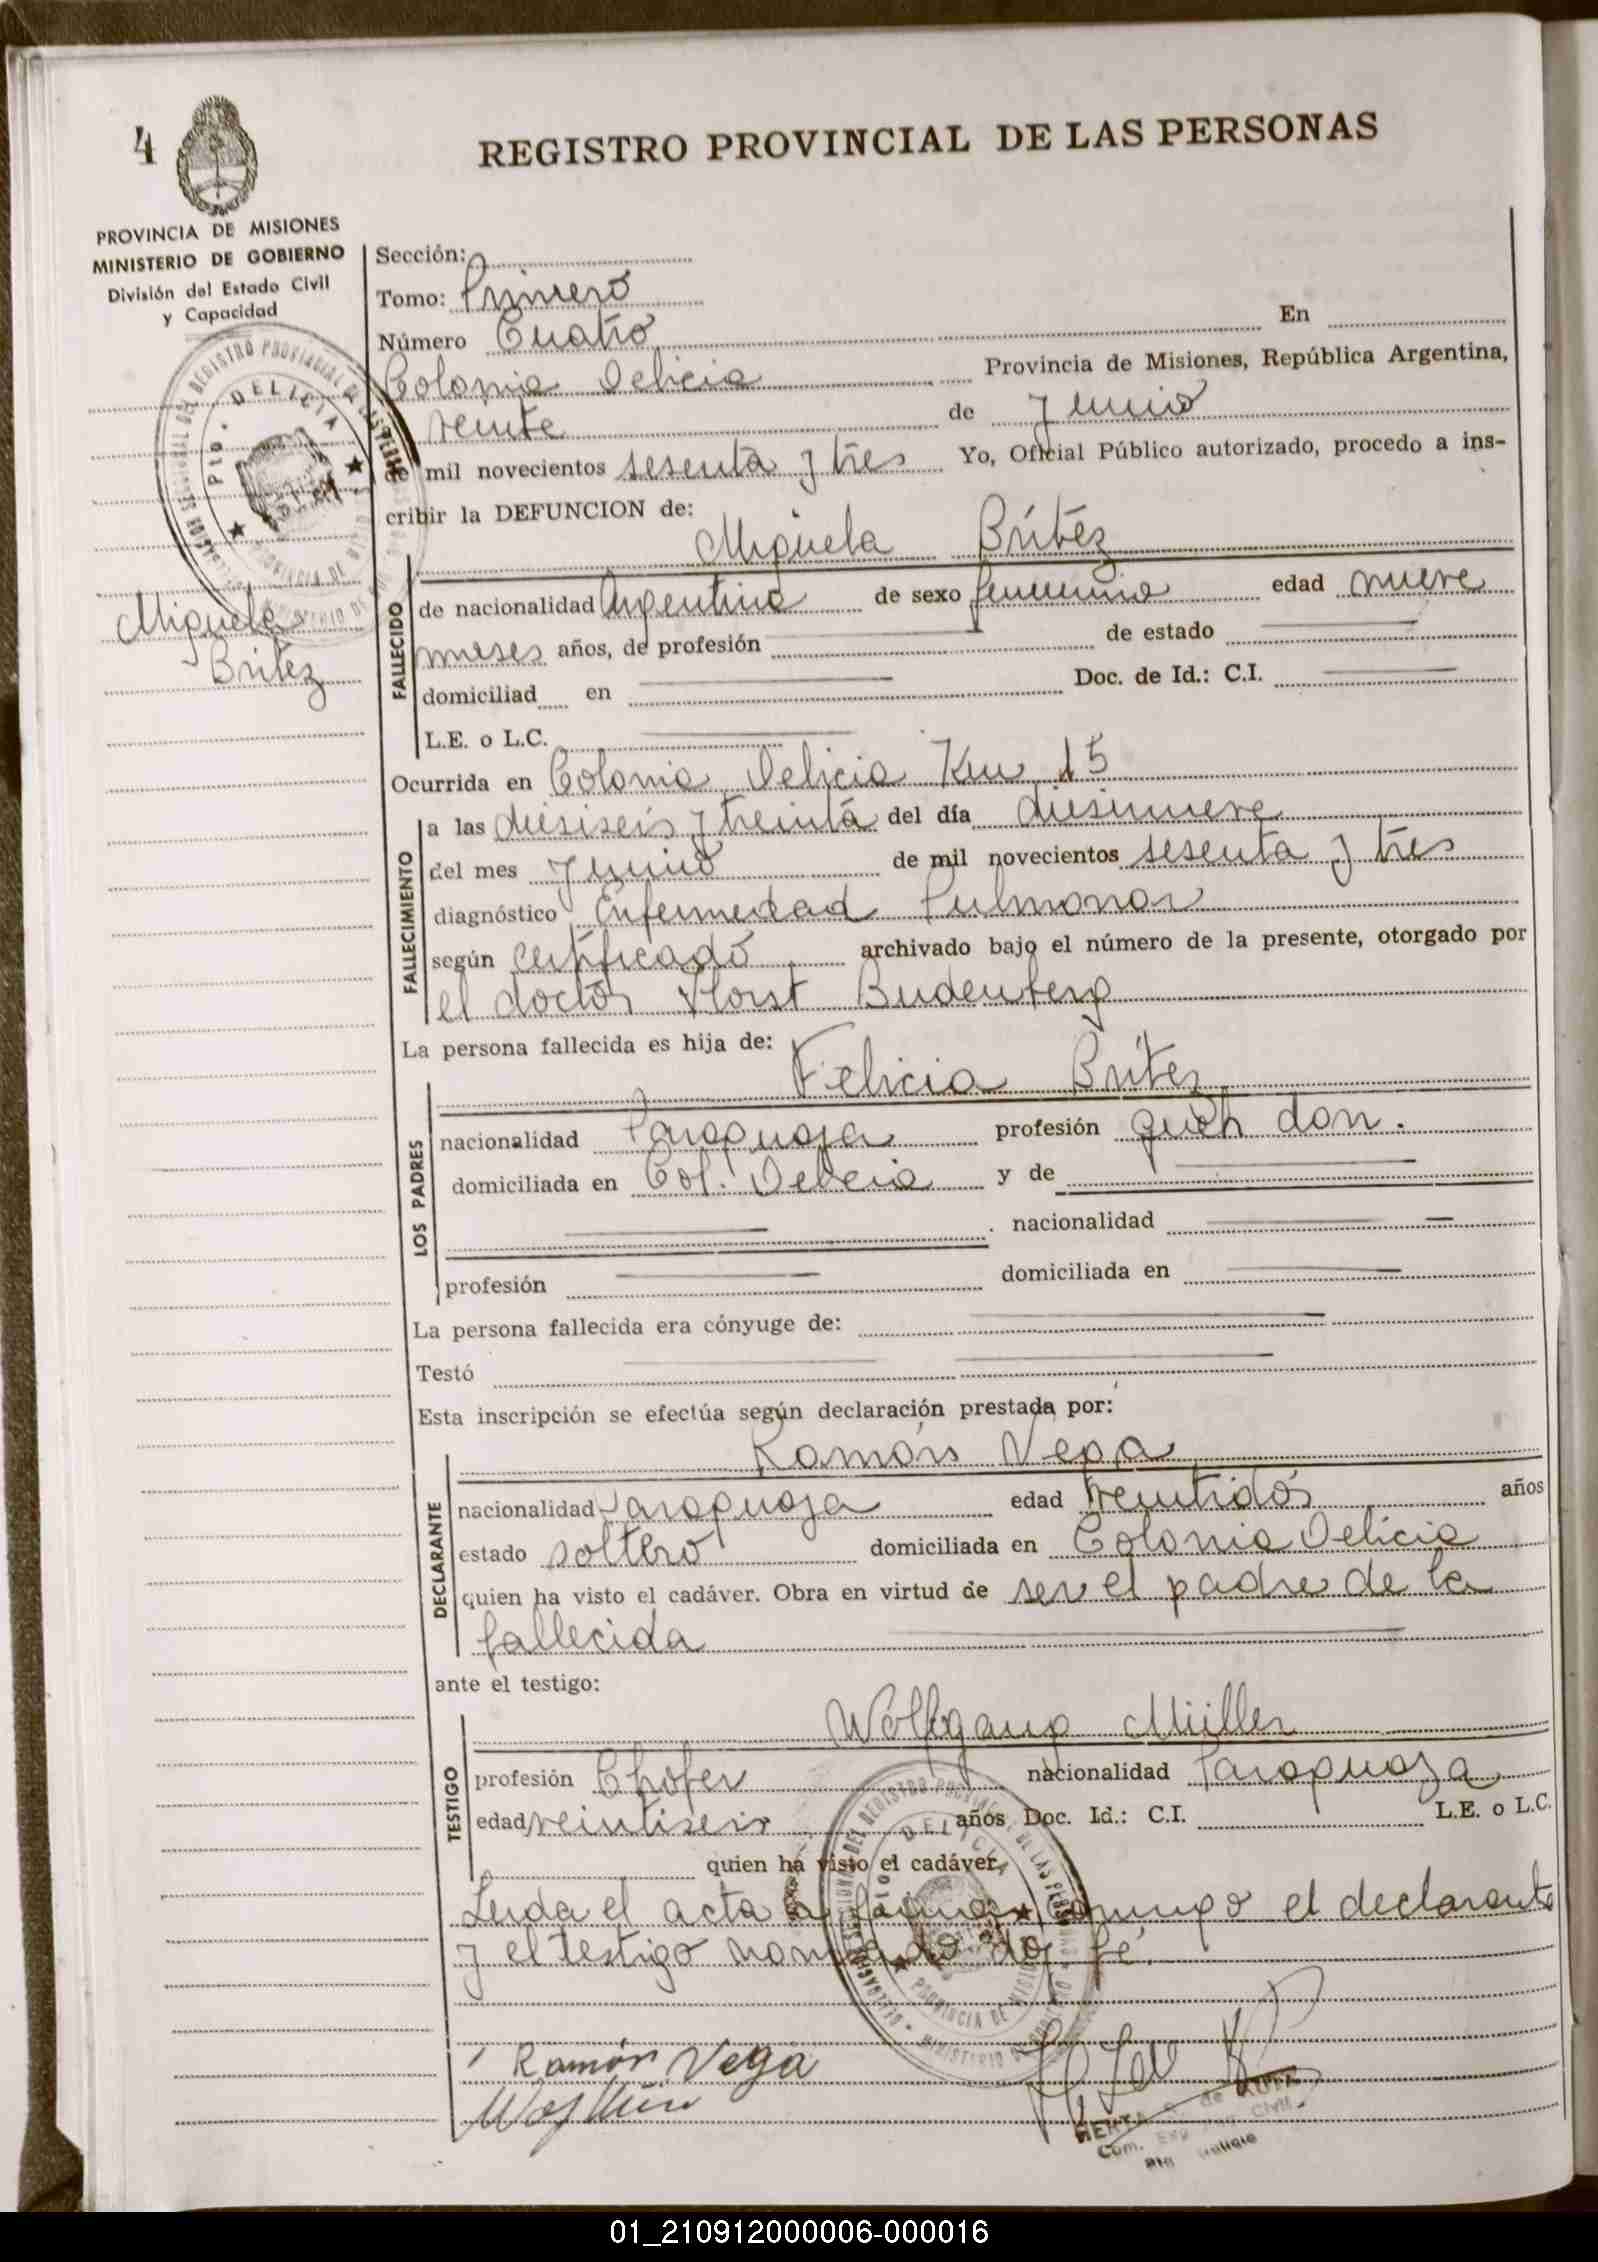 4
REGISTRO PROVINCIAL DE LAS PERSONAS
PROVINCIA DE MISIONES
MINISTERIO DE GOBIERNO
División del Estado Civil
y Capacidad
Sección:
Tomo: Primero
Número Cuatro En
Colonia Delicia Provincia de Misiones, República Argentina,
veinte de Junio
de mil novecientos sesenta y tres Yo, Oficial Público autorizado, procedo a ins-
cribir la DEFUNCION de:
Miguela Britez
Miguela
Britez
FALLECIDO
de nacionalidad Argentina de sexo femenino edad nueve
meses años, de profesión de estado
domiciliad en Doc. de Id.: C.I.
L.E. o L.C.
Ocurrida en Colonia Delicia Km 15
FALLECIMIENTO
a las diesiseis y treinta del día diesinueve
del mes Junio de mil novecientos sesenta y tres
diagnóstico Enfermedad Pulmonar
según certificado archivado bajo el número de la presente, otorgado por
el doctor Horst Budenberg
La persona fallecida es hija de:
Felicia Britez
LOS PADRES
nacionalidad Paraguaya profesión queh dom.
domiciliada en Col. Delicia y de
nacionalidad
profesión domiciliada en
La persona fallecida era cónyuge de:
Testó
Esta inscripción se efectúa según declaración prestada por:
Ramón Vega
DECLARANTE
nacionalidad Paraguaya edad veintidós años
estado soltero domiciliada en Colonia Delicia
quien ha visto el cadáver. Obra en virtud de ser el padre de la
fallecida
ante el testigo:
Wolfgang Müller
TESTIGO
profesión Chofer nacionalidad Paraguaya
edad veintiseis años Doc. Id.: C.I. L.E. o L.C.
quien ha visto el cadáver.
Leida el acta la firman conmigo el declarante
y el testigo nombrado doy fé.
Ramón Vega
HERTA de RUIZ
01_210912000006-000016